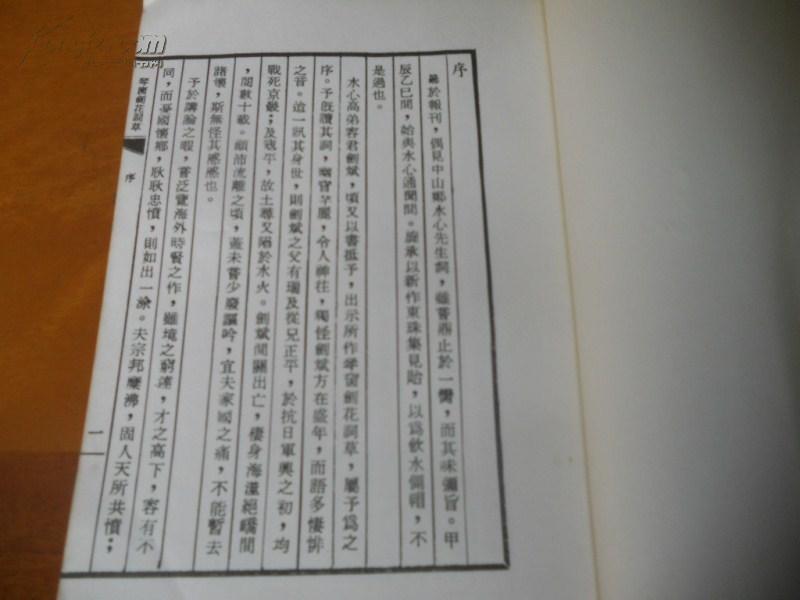 序
於報刊，偶見中山鄭水心先生詞，雖嘗鼎止於一臠，而其味彌旨。甲
辰乙巳間，始與水心通聞問。旋承以新作東珠集見貽，以爲飲水側帽，不
是過也。
水心高弟容君劍斌，頃又以書抵予，出示所作琴窗劍花詞草，屬予爲之
序。予旣讀其詞，幽窅芊麗，令人神往，獨怪劍斌方在盛年，而語多悽悱
之音。迨一訊其身世，則劍斌之父有瑞及從兄正平，於抗日軍興之初，均
戰死京畿；及戎平，故土尋又陷於水火。劍斌間關出亡，棲身海澨絕嶠間
，閱數十載。顚沛流離之頃，蓋未嘗少廢謳吟，宜夫家國之痛，不能暫去
諸懷，斯無怪其慼慼也。
予於講論之暇，嘗泛覽海外時賢之作，雖境之窮達，才之高下，容有不
同，而憂國懷鄉，耿耿忠憤，則如出一涂。夫宗邦糜沸，固人天所共憤；
琴窗劍花詞草
序
一